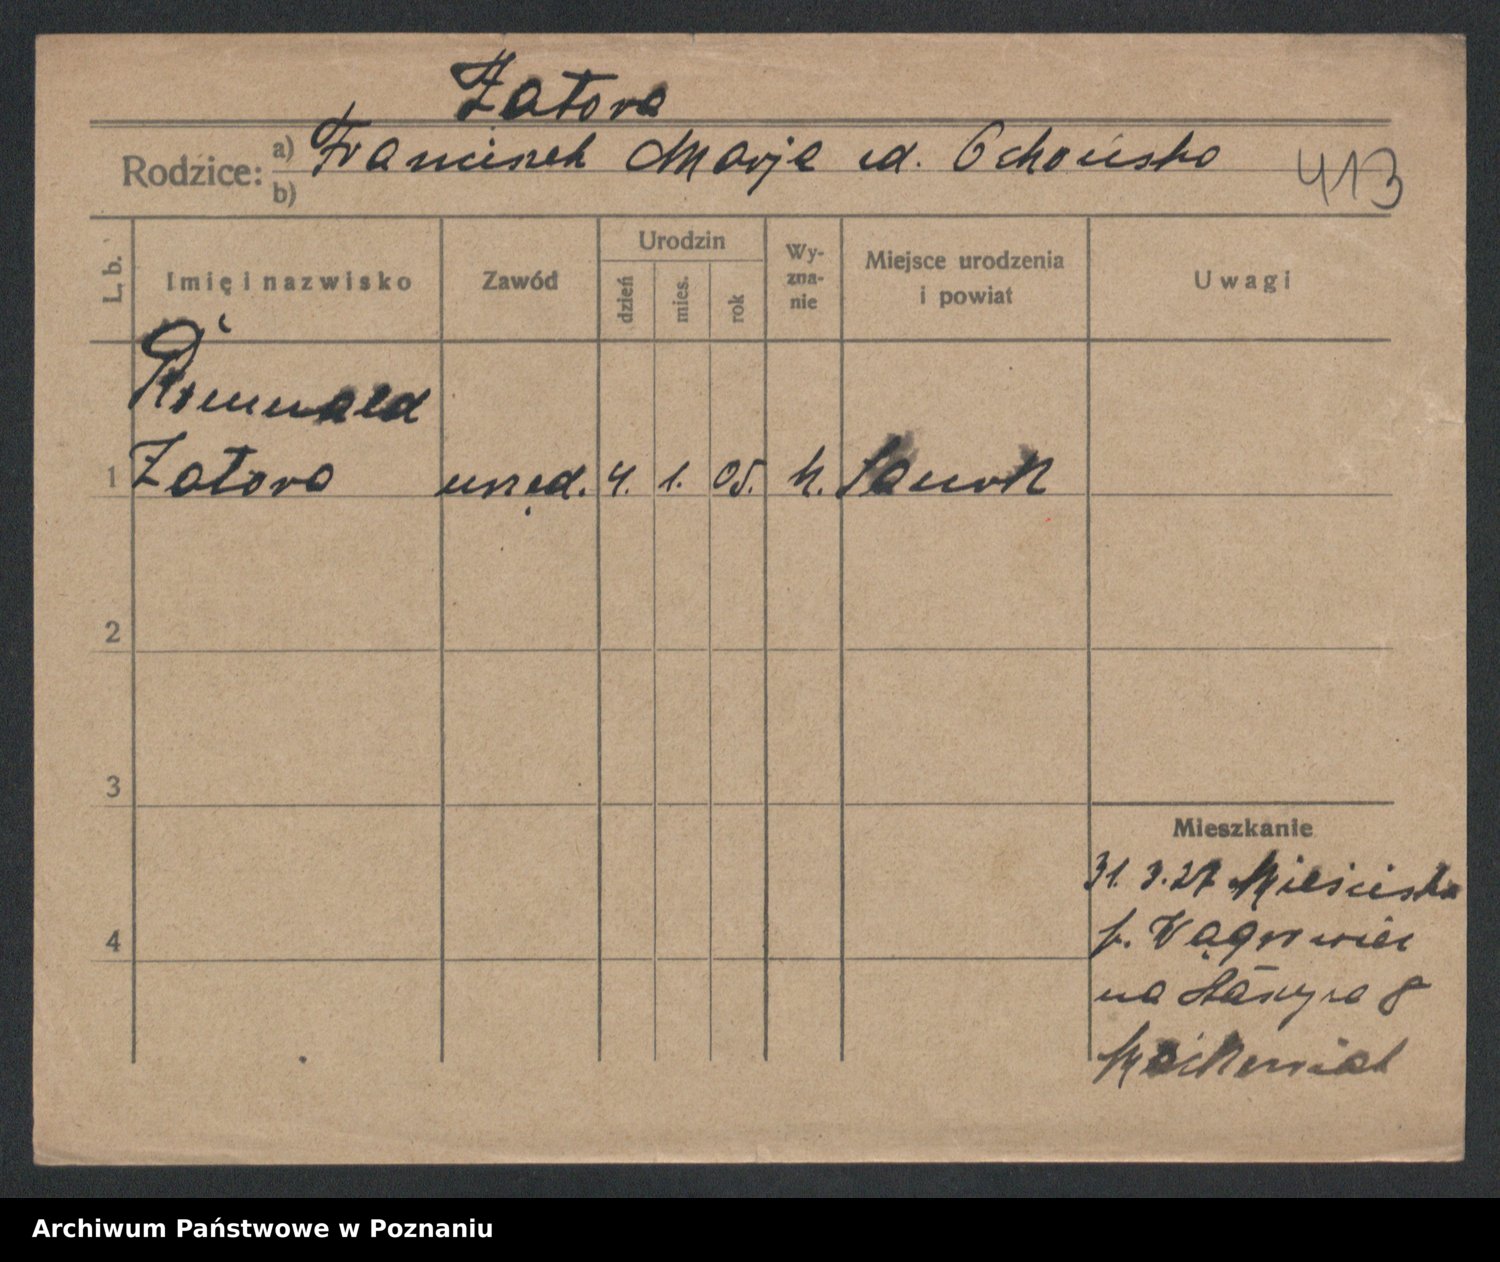 Zatora
Rodzice: a) Franciszek Marja ud. Ochońska
b)
413
L. b.
Imię i nazwisko
Zawód
Urodzin
dzień
mies.
rok
Wy-
zna-
nie
Miejsce urodzenia
i powiat
Uwagi
Romuald
1 Zatora urzęd. 4. 1. 05. k. Sanok
2
3
4
Mieszkanie
31. 3. 27 Mieścisko
p. Wągrowiec
na 8
Archiwum Państwowe w Poznaniu